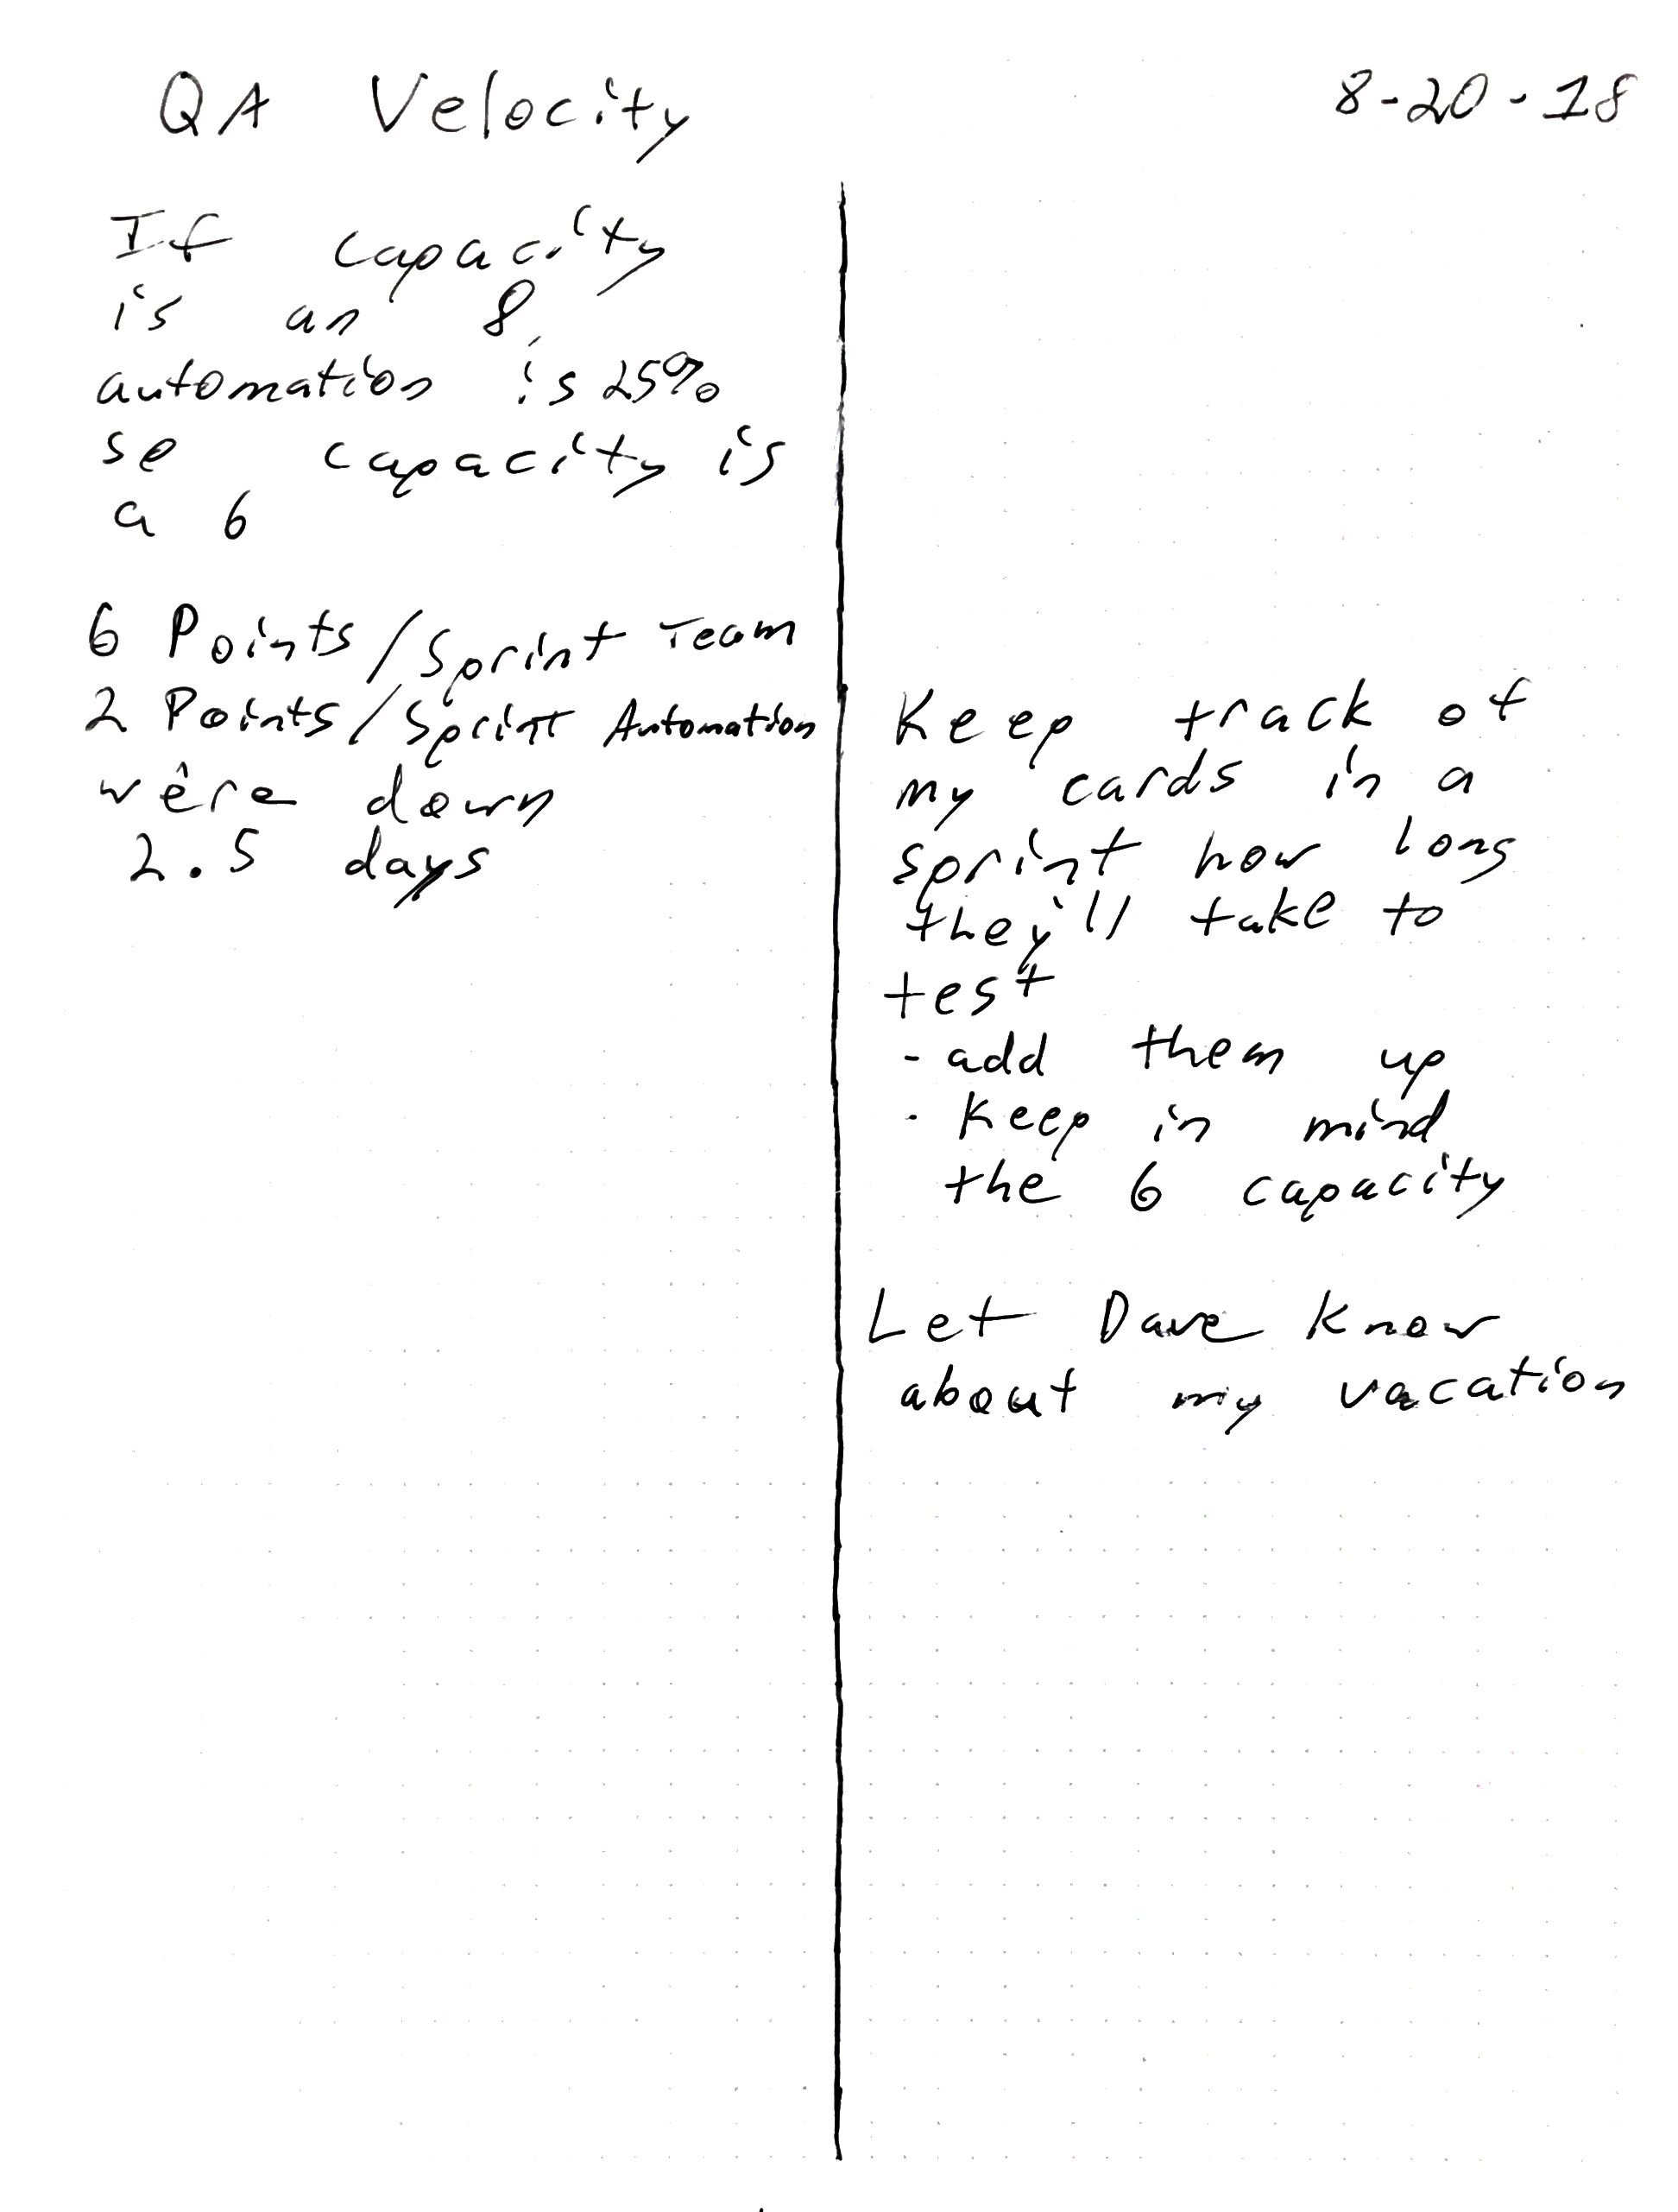 QA Velocity 8-20-18
If capacity
is an 8,
automation is 25%
so capacity is
a 6
6 Points/Sprint Team
2 Points/Sprint Automation
we're down
2.5 days
Keep track of
my cards in a
sprint how long
they'll take to
test
- add them up
- Keep in mind
the 6 capacity
Let Dave know
about my vacation